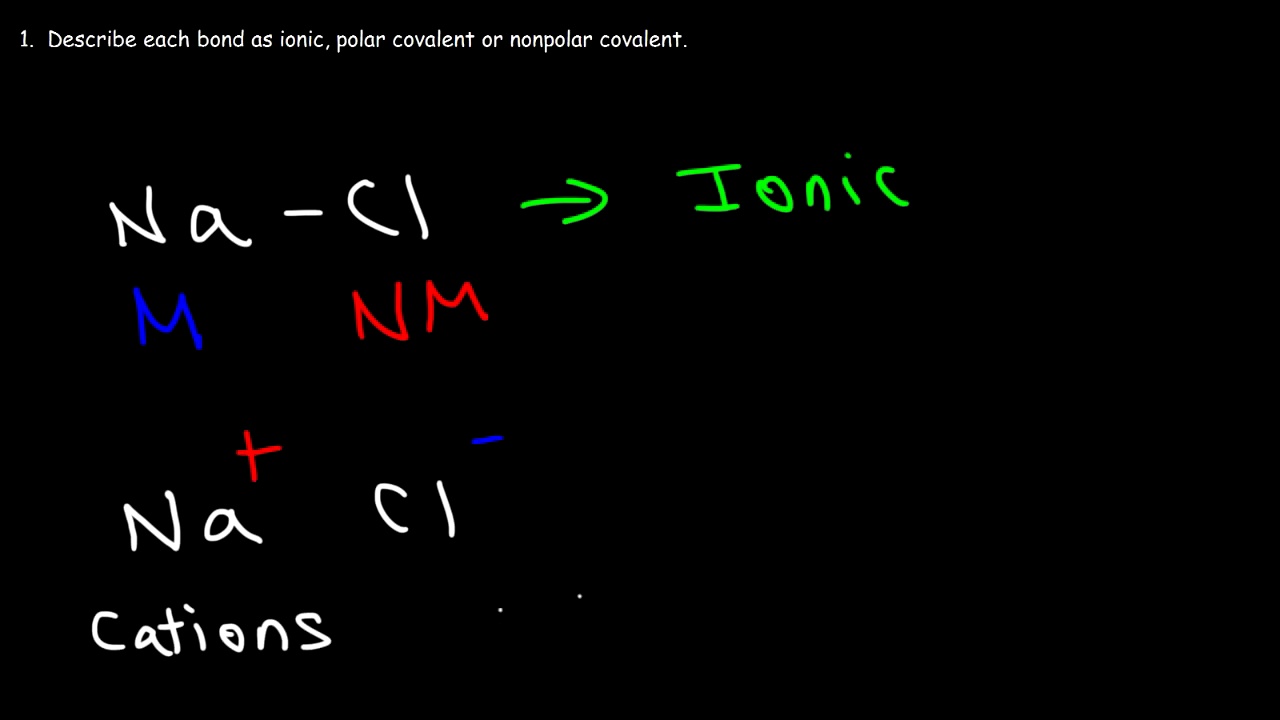 1. Describe each bond as ionic, polar covalent or nonpolar covalent.
Na - Cl → Ionic
M NM
Na+ Cl-
Cations